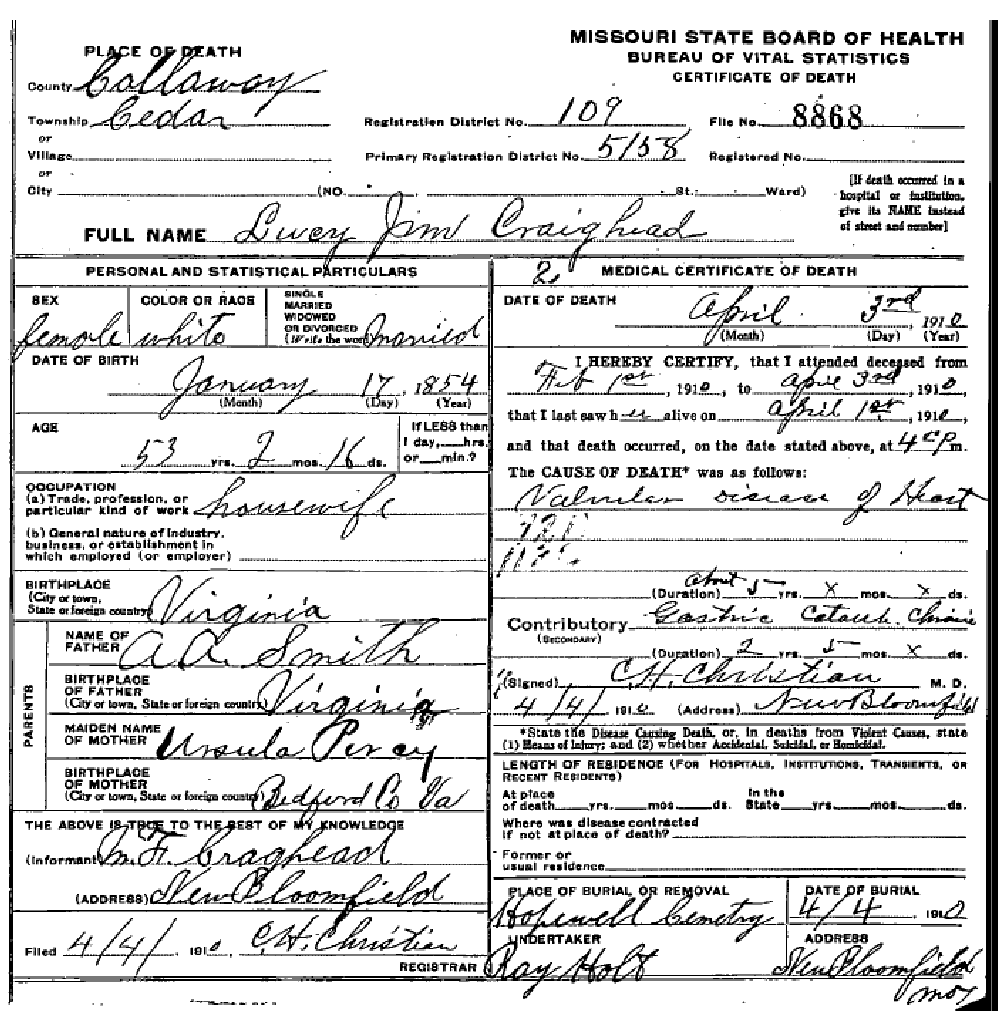 MISSOURI STATE BOARD OF HEALTH
BUREAU OF VITAL STATISTICS
CERTIFICATE OF DEATH
PLACE OF DEATH
County Callaway
Township Cedar
or
Village
or
City (NO. St.; Ward)
Registration District No. 109
File No. 8868
Primary Registration District No. 5158
Registered No.
[If death occurred in a
hospital or institution,
give its NAME instead
of street and number]
FULL NAME Livey Jim Craighead
PERSONAL AND STATISTICAL PARTICULARS
SEX
female
COLOR OR RACE
white
SINGLE
MARRIED
WIDOWED
OR DIVORCED
(Write the word) married
DATE OF BIRTH
January 17, 1854
(Month) (Day) (Year)
AGE
53 yrs. 2 mos. 16 ds.
If LESS than
1 day, hrs.
or min.?
OCCUPATION
(a) Trade, profession, or
particular kind of work housewife
(b) General nature of industry,
business, or establishment in
which employed (or employer)
BIRTHPLACE
(City or town,
State or foreign country) Virginia
PARENTS
NAME OF
FATHER A A Smith
BIRTHPLACE
OF FATHER
(City or town, State or foreign country) Virginia
MAIDEN NAME
OF MOTHER Ursula Percy
BIRTHPLACE
OF MOTHER
(City or town, State or foreign country) Bedford Co Va
THE ABOVE IS TRUE TO THE BEST OF MY KNOWLEDGE
(Informant M. F. Craghead
(ADDRESS) New Bloomfield
Filed 4/4/ 1910 C. H. Christian
REGISTRAR
2 MEDICAL CERTIFICATE OF DEATH
DATE OF DEATH
April 3rd, 1910
(Month) (Day) (Year)
I HEREBY CERTIFY, that I attended deceased from
Feb 1st, 1910, to April 3rd, 1910
that I last saw her alive on April 1st, 1910
and that death occurred, on the date stated above, at 4 P m.
The CAUSE OF DEATH* was as follows:
Valvular disease of Heart
(Duration) about 5 yrs. x mos. x ds.
Contributory Gastric Catarrh. Chronic
(SECONDARY)
(Duration) 2 yrs. 5 mos. x ds.
(Signed) C. H. Christian M. D.
4/4/ 1910 (Address) New Bloomfield
*State the Disease Causing Death, or, in deaths from Violent Causes, state
(1) Means of Injury; and (2) whether Accidental, Suicidal, or Homicidal.
LENGTH OF RESIDENCE (FOR HOSPITALS, INSTITUTIONS, TRANSIENTS, OR
RECENT RESIDENTS)
At place
of death yrs. mos. ds.
In the
State yrs. mos. ds.
Where was disease contracted
if not at place of death?
Former or
usual residence
PLACE OF BURIAL OR REMOVAL
Hopewell Cemetry
DATE OF BURIAL
4/4 1910
UNDERTAKER
Ray Holt
ADDRESS
New Bloomfield
Mo